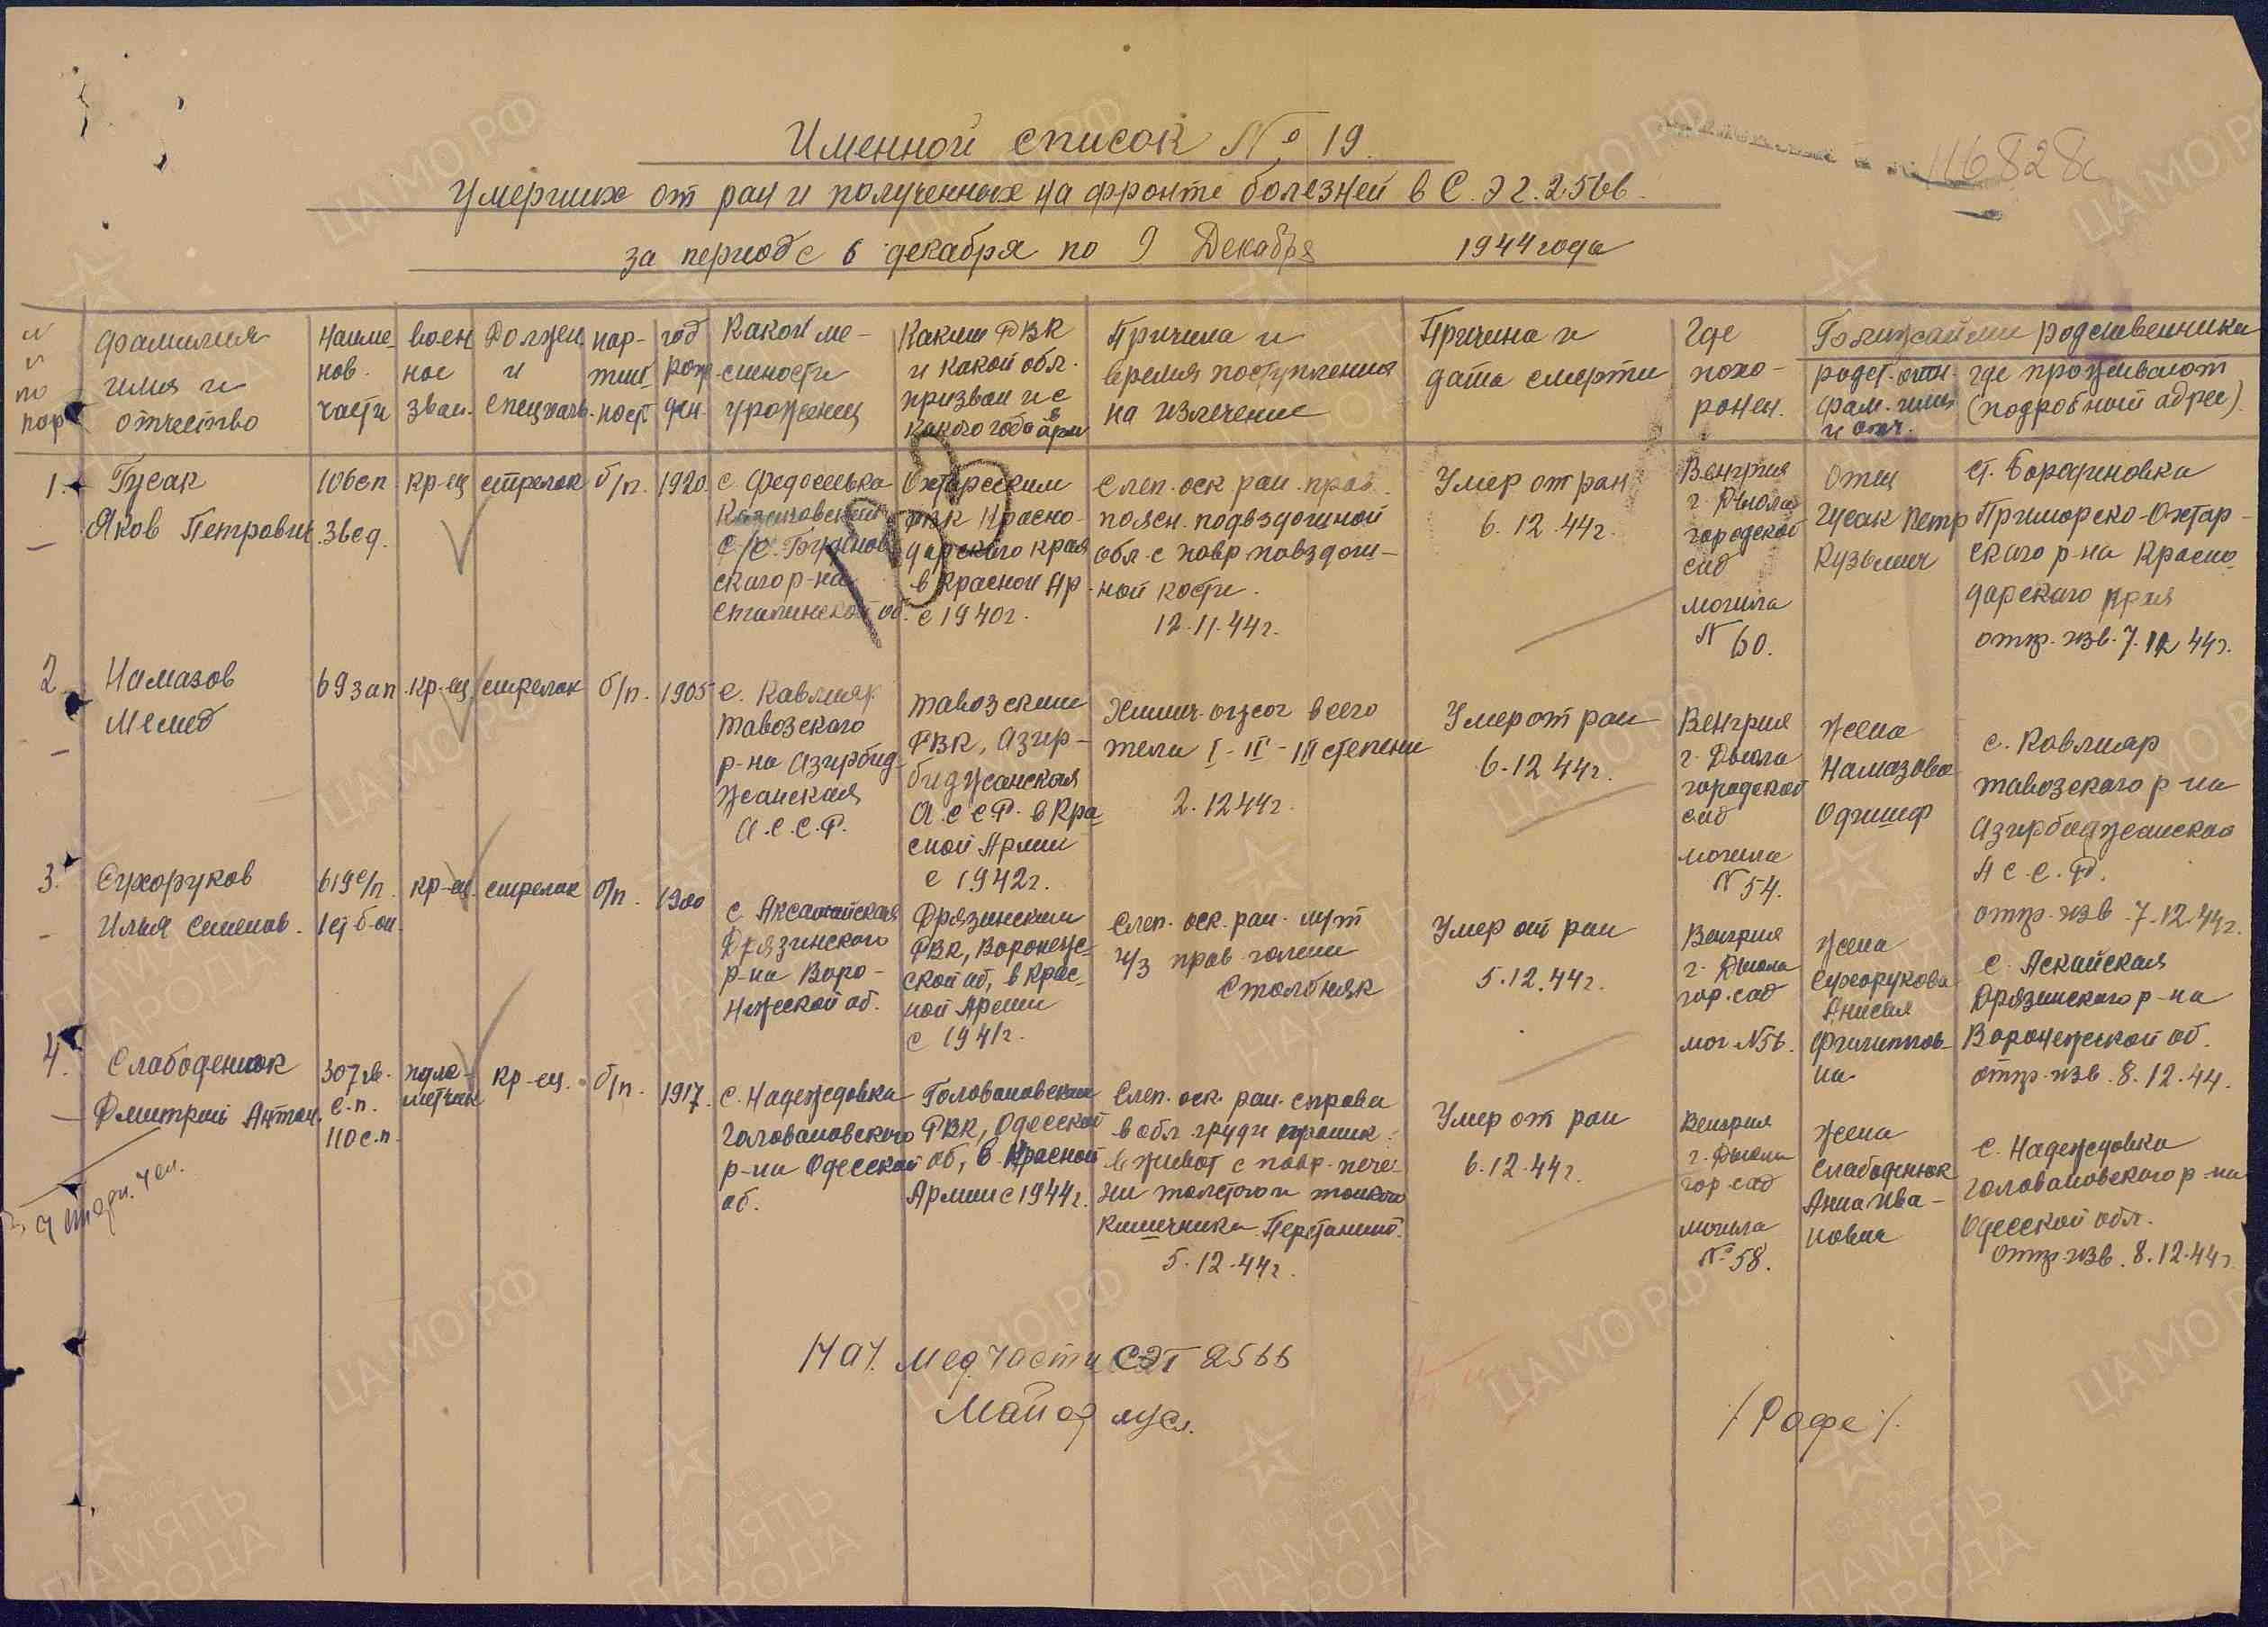 Именной список № 19.
Умерших от ран и полученных на фронте болезней в С.Э.Г. 2566.
за период с 6 декабря по 9 Декабря 1944 года
116828с
№
по
пор
фамилия
имя и
отчество
Наиме-
нов.
части
воен
ное
зван.
Должн
и
спец
пар-
тийн
ност
год
рож
ден.
Какой ме-
сности
уроженец
Каким РВК
и какой обл.
призван и с
какого года в арм
Причина и
время поступления
на излечение
Причина и
дата смерти
Где
похо-
ронен.
Ближайшии родственники
родст. отн.
фам. имя
и отч.
где проживают
(подробный адрес).
1.
Гусак
Яков Петрович
106 сп
Звед.
кр-ец
стрелок
б/п.
1920
с. Федосеевка
с/с.
ского р-на
Сталинской об.
Охтарским
РВК Красно-
дарского края
в Красной Ар
с 1940 г.
Слеп. оск. ран. прав.
поясн. подвздошной
обл. с повр. повздош-
ной кости.
12.11.44 г.
Умер от ран
6.12.44 г.
Венгрия
г. Дьюла
городской
сад
могила
N 60.
Отец
Гусак Петр
Кузьмич
ст. Бородиновка
Приморско-Охтар-
ского р-на Красно-
дарского края
отпр. изв. 7.12 44 г.
2
Намазов
Мемед
69 зап
кр-ец
стрелок
б/п.
1905
с. Кавлияр
Тавозского
р-на Азирбид-
жанская
А.С.С.Р.
Тавозским
РВК, Азир-
биджанская
А.С.С.Р. в Кра
сной Армии
с 1942 г.
Химич. ожог всего
тела I - II - III степени
2.12 44 г.
Умер от ран
6.12 44 г.
Венгрия
г. Дьюла
городской
сад
могила
N 54.
Жена
Намазова
с. Кавлияр
Тавозского р-на
Азирбиджанская
А С.С.Р.
отпр. изв. 7.12.44 г.
3.
Сухоруков
Илья Семенов.
619 с/п.
1 ст б-он
кр-ец.
стрелок
б/п.
1900
с.
р-на Воро-
нежской об.
РВК, Воронеж-
ской об, в Крас-
ной Армии
с 1941 г.
Слеп. оск. ран.
н/з прав. голени
Столбняк
Умер от ран
5.12.44 г.
Венгрия
г. Дьюла
гор. сад
мог. N 56.
Жена
Сухорукова
Анисия
Филиппов-
на
с. Аскайская
Дрязинского р-на
Воронежской об.
отпр. изв. 8.12.44.
4.
Слабоденюк
Дмитрий Антон.
307 гв.
с.п.
110 с.п.
пуле-
метчик
кр-ец.
б/п.
1917.
с. Надеждовка
Головановского
р-на Одесской
об.
Головановским
РВК, Одесской
об, в Красной
Армии с 1944 г.
Слеп. оск. ран. справа
в обл. груди проник.
в живот с повр. пече-
ни толстого и тонкого
кишечника.
5.12.44 г.
Умер от ран
6.12.44 г.
Венгрия
г. Дьюла
гор. сад
могила
№ 58.
Жена
Слабоденюк
Анна Ива-
новна
с. Надеждовка
Головановского р-на
Одесской обл.
отпр. изв. 8.12.44 г
Нач. мед. части СЭГ 2566
Майор м/сл.
/ Рафе /.
ЦАМО РФ
ПАМЯТЬ
НАРОДА